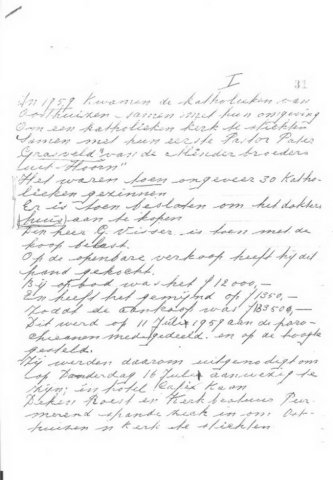 I 31
In 1959 kwamen de katholieken van
Oosthuizen - samen met hun omgeving
Om een katholieken kerk te stichten
Samen met hun eerste Pastor Pater
Grasveld "van de Minder broeders
uit - Hoorn"
Het waren toen ongeveer 30 Katho-
lieken gezinnen
Er is toen besloten om het dokters
huis aan te kopen
Den heer G. Visser is toen met de
koop belast.
Op de openbare verkoop heeft hij dit
pand gekocht.
Bij opbod was het ƒ 12000,-
En heeft het gemijnd op ƒ 1350,-
Zodat de aankoop was ƒ 13500,-
Dit werd op 11 Juli 1959 aan de paro-
chieanen medegedeeld en op de hoogte
gesteld.
Wij werden daarom uitgenodigd om
op Donderdag 16 Juli aanwezig te
zijn; in hotel Kaan
Deken Roest en Kerkbestuur Pur-
merend spande zich in om Oost-
huizen n kerk te stichten